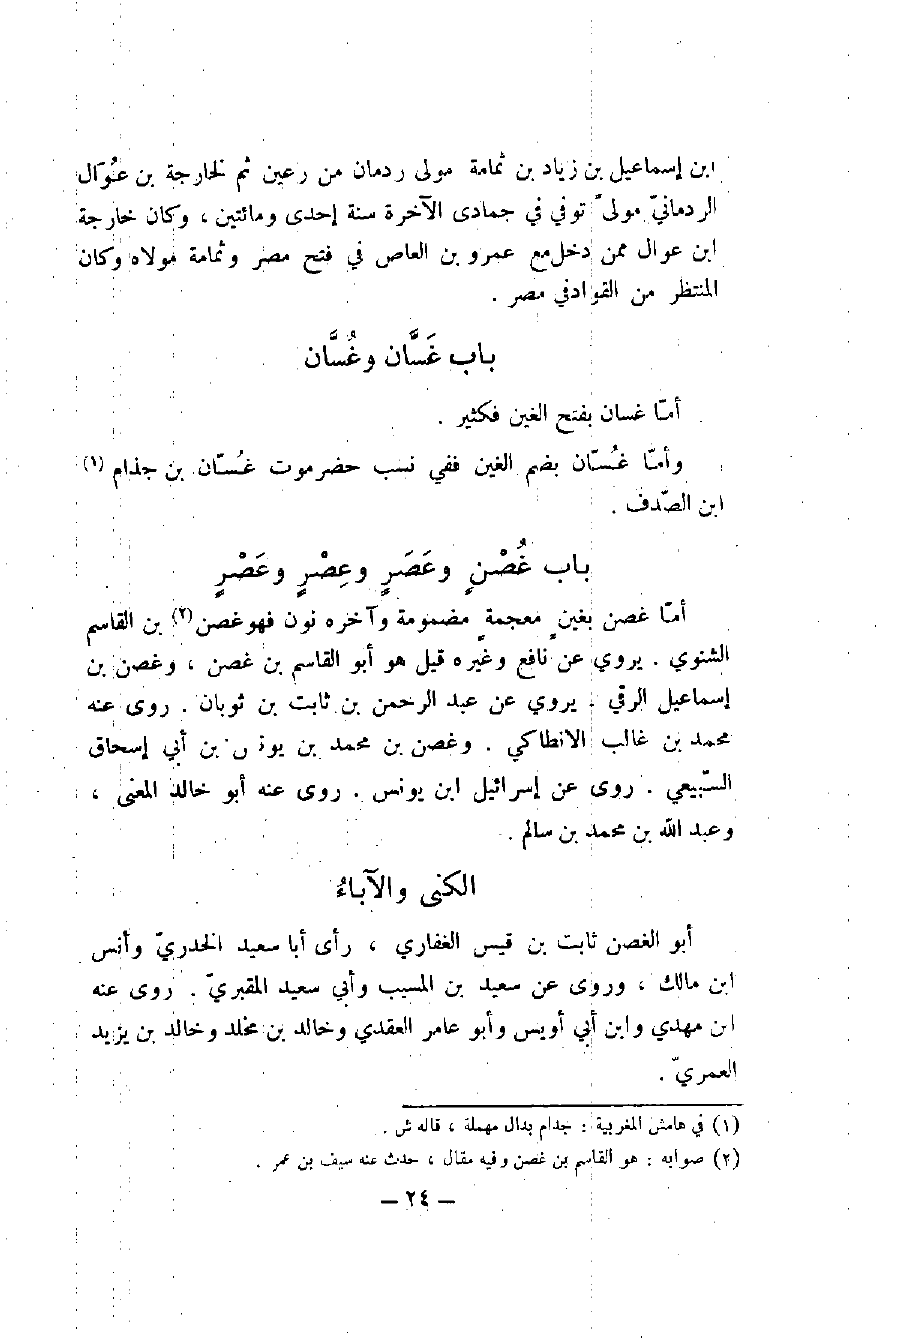 ابن إسماعيل بن زياد بن ثمامة مولى ردمان من رعين ثم لخارجة بن عُنوَال
الردمانيّ مولىً توفي في جمادى الآخرة سنة إحدى ومائتين ، وكان خارجة
ابن عوال ممن دخل مع عمرو بن العاص في فتح مصر وثمامة مولاه وكان
المنتظر من القواد في مصر .
باب غَسَّان وغُسَّان
أمّا غسان بفتح الغين فكثير .
وأمّا غُسّان بضم الغين ففي نسب حضرموت غُسّان بن جذام (١)
ابن الصّدف .
باب غُصْنٍ وعَصَرٍ وعِصْرٍ وعَصْرٍ
أمّا غصن بغينٍ معجمةٍ مضمومة وآخره نون فهو غصن (٢) بن القاسم
الشنوي . يروي عن نافع وغيره قيل هو أبو القاسم بن غصن ، وغصن بن
إسماعيل الرقي . يروي عن عبد الرحمن بن ثابت بن ثوبان . روى عنه
محمد بن غالب الانطاكي . وغصن بن محمد بن يونس بن أبي إسحاق
السّبيعي . روى عن إسرائيل ابن يونس . روى عنه أبو خالد المعنى ،
وعبد الله بن محمد بن سالم .
الكنى والآباءُ
أبو الغصن ثابت بن قيس الغفاري ، رأى أبا سعيد الخدريّ وأنس
ابن مالك ، وروى عن سعيد بن المسيب وأبي سعيد المقبريّ . روى عنه
ابن مهدي وابن أبي أويس وأبو عامر العقدي وخالد بن مخلد وخالد بن يزيد
العمريّ .
(١) في هامش المغربية : جدام بدال مهملة ، قاله ش .
(٢) صوابه : هو القاسم بن غصن وفيه مقال ، حدث عنه سيف بن عمر .
— ٢٤ —